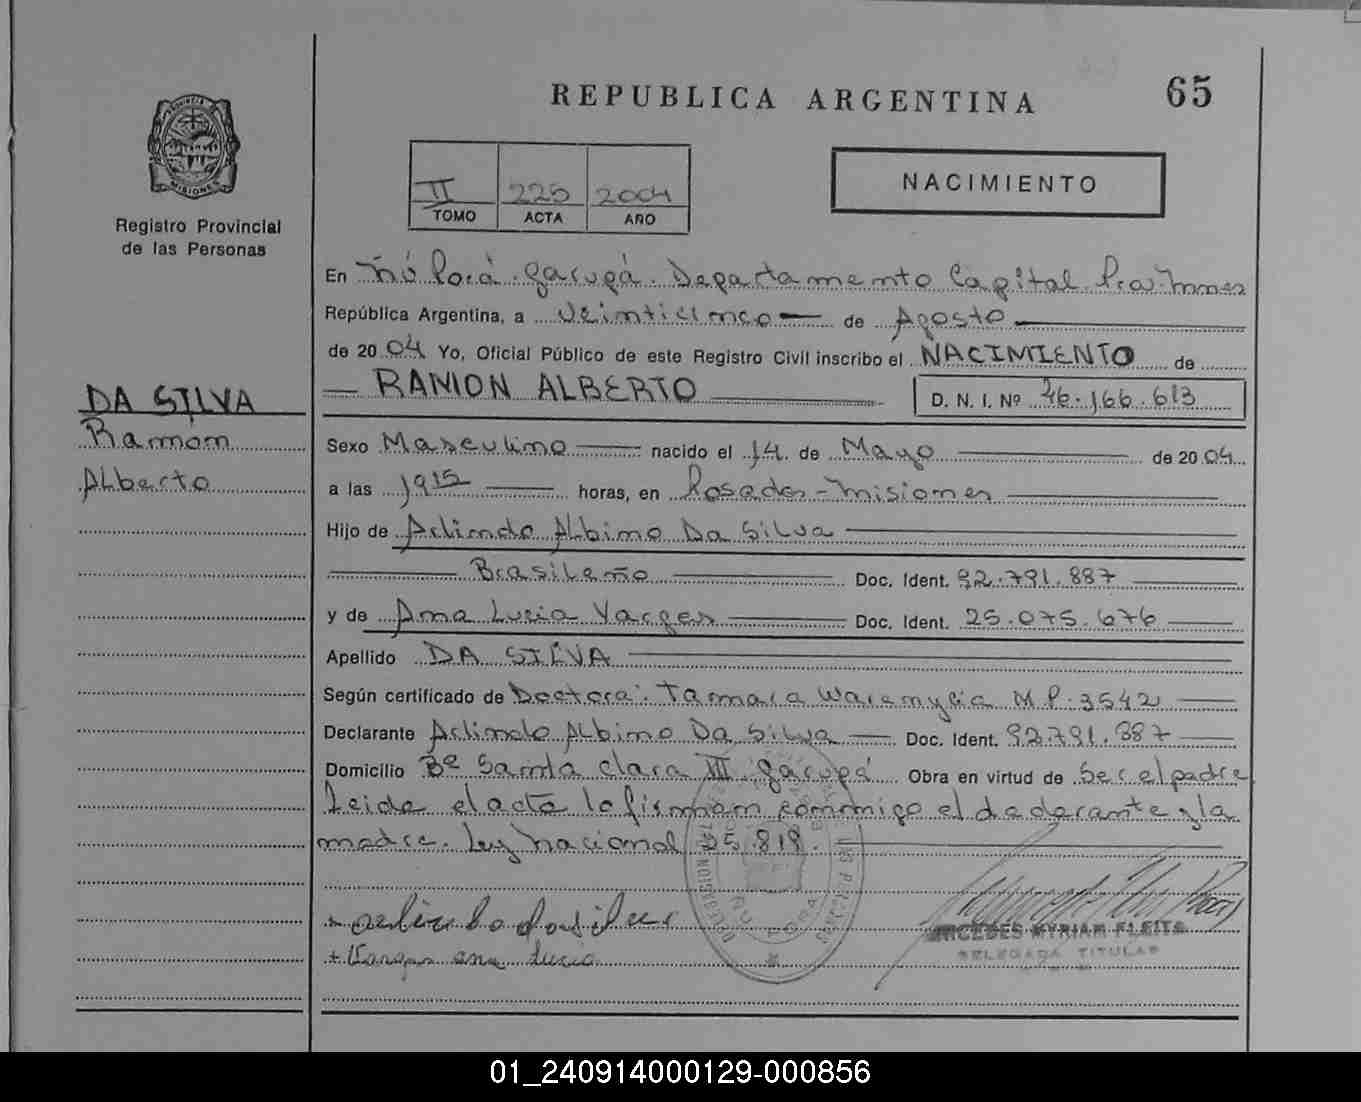 REPUBLICA ARGENTINA
65
PROVINCIA
MISIONES
Registro Provincial
de las Personas
II 225 2004
TOMO ACTA AÑO
NACIMIENTO
En Ñú Porá. Garupá. Departamento Capital. Pcia. Mnes
República Argentina, a veinticinco de Agosto
de 2004 Yo, Oficial Público de este Registro Civil inscribo el NACIMIENTO de
RAMON ALBERTO D. N. I. Nº 46.166.613
DA SILVA
Ramón
Alberto
Sexo Masculino nacido el 14 de Mayo de 2004
a las 19 15 horas, en Posadas - Misiones
Hijo de Arlindo Albino Da Silva
Brasileño Doc. Ident. 92.791.887
y de Ana Lucia Vargas Doc. Ident. 25.075.676
Apellido DA SILVA
Según certificado de Doctora: Tamara M.P. 3542
Declarante Arlindo Albino Da Silva Doc. Ident. 92.791.887
Domicilio Bº Santa Clara III Garupá Obra en virtud de Ser el padre
Leida el acta la firman conmigo el declarante y la
madre. Ley Nacional 25.819.
+ arlindo da silva
+ Vargas ana lucia
MERCEDES MYRIAM FLEITA
DELEGADA TITULAR
01_240914000129-000856